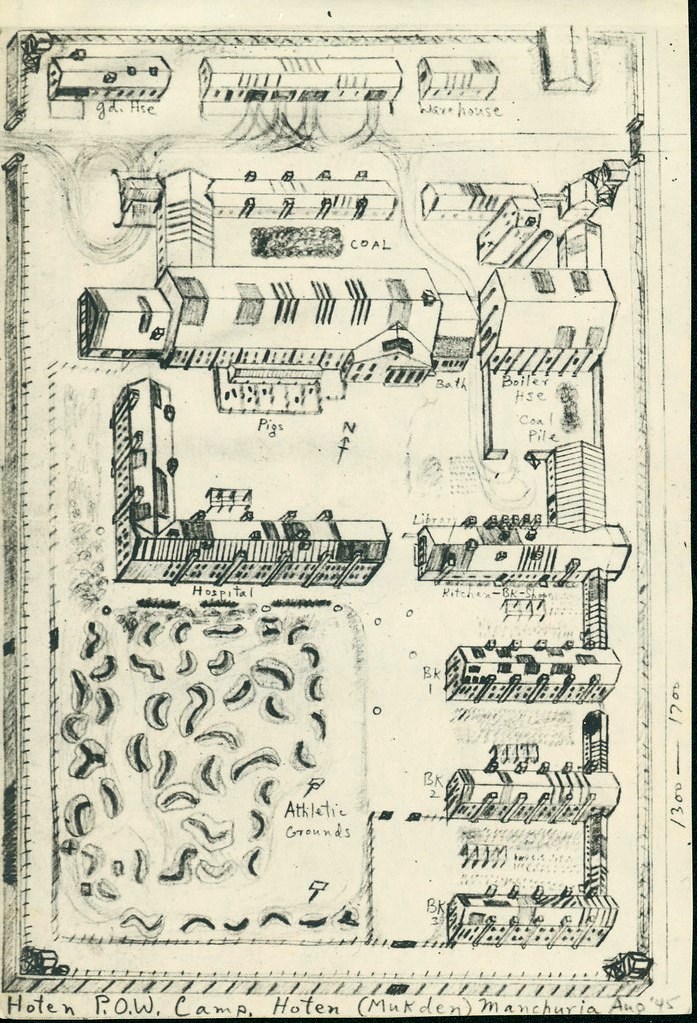 gd. Hse
Warehouse
COAL
Bath
Boiler
Hse
Coal
Pile
Pigs
N
Library
Hospital
Kitchen-BK-Shoon
BK
1
BK
2
Athletic
Grounds
BK
3
1300 — 1700
Hoten P.O.W. Camp, Hoten (Mukden) Manchuria Aug '45